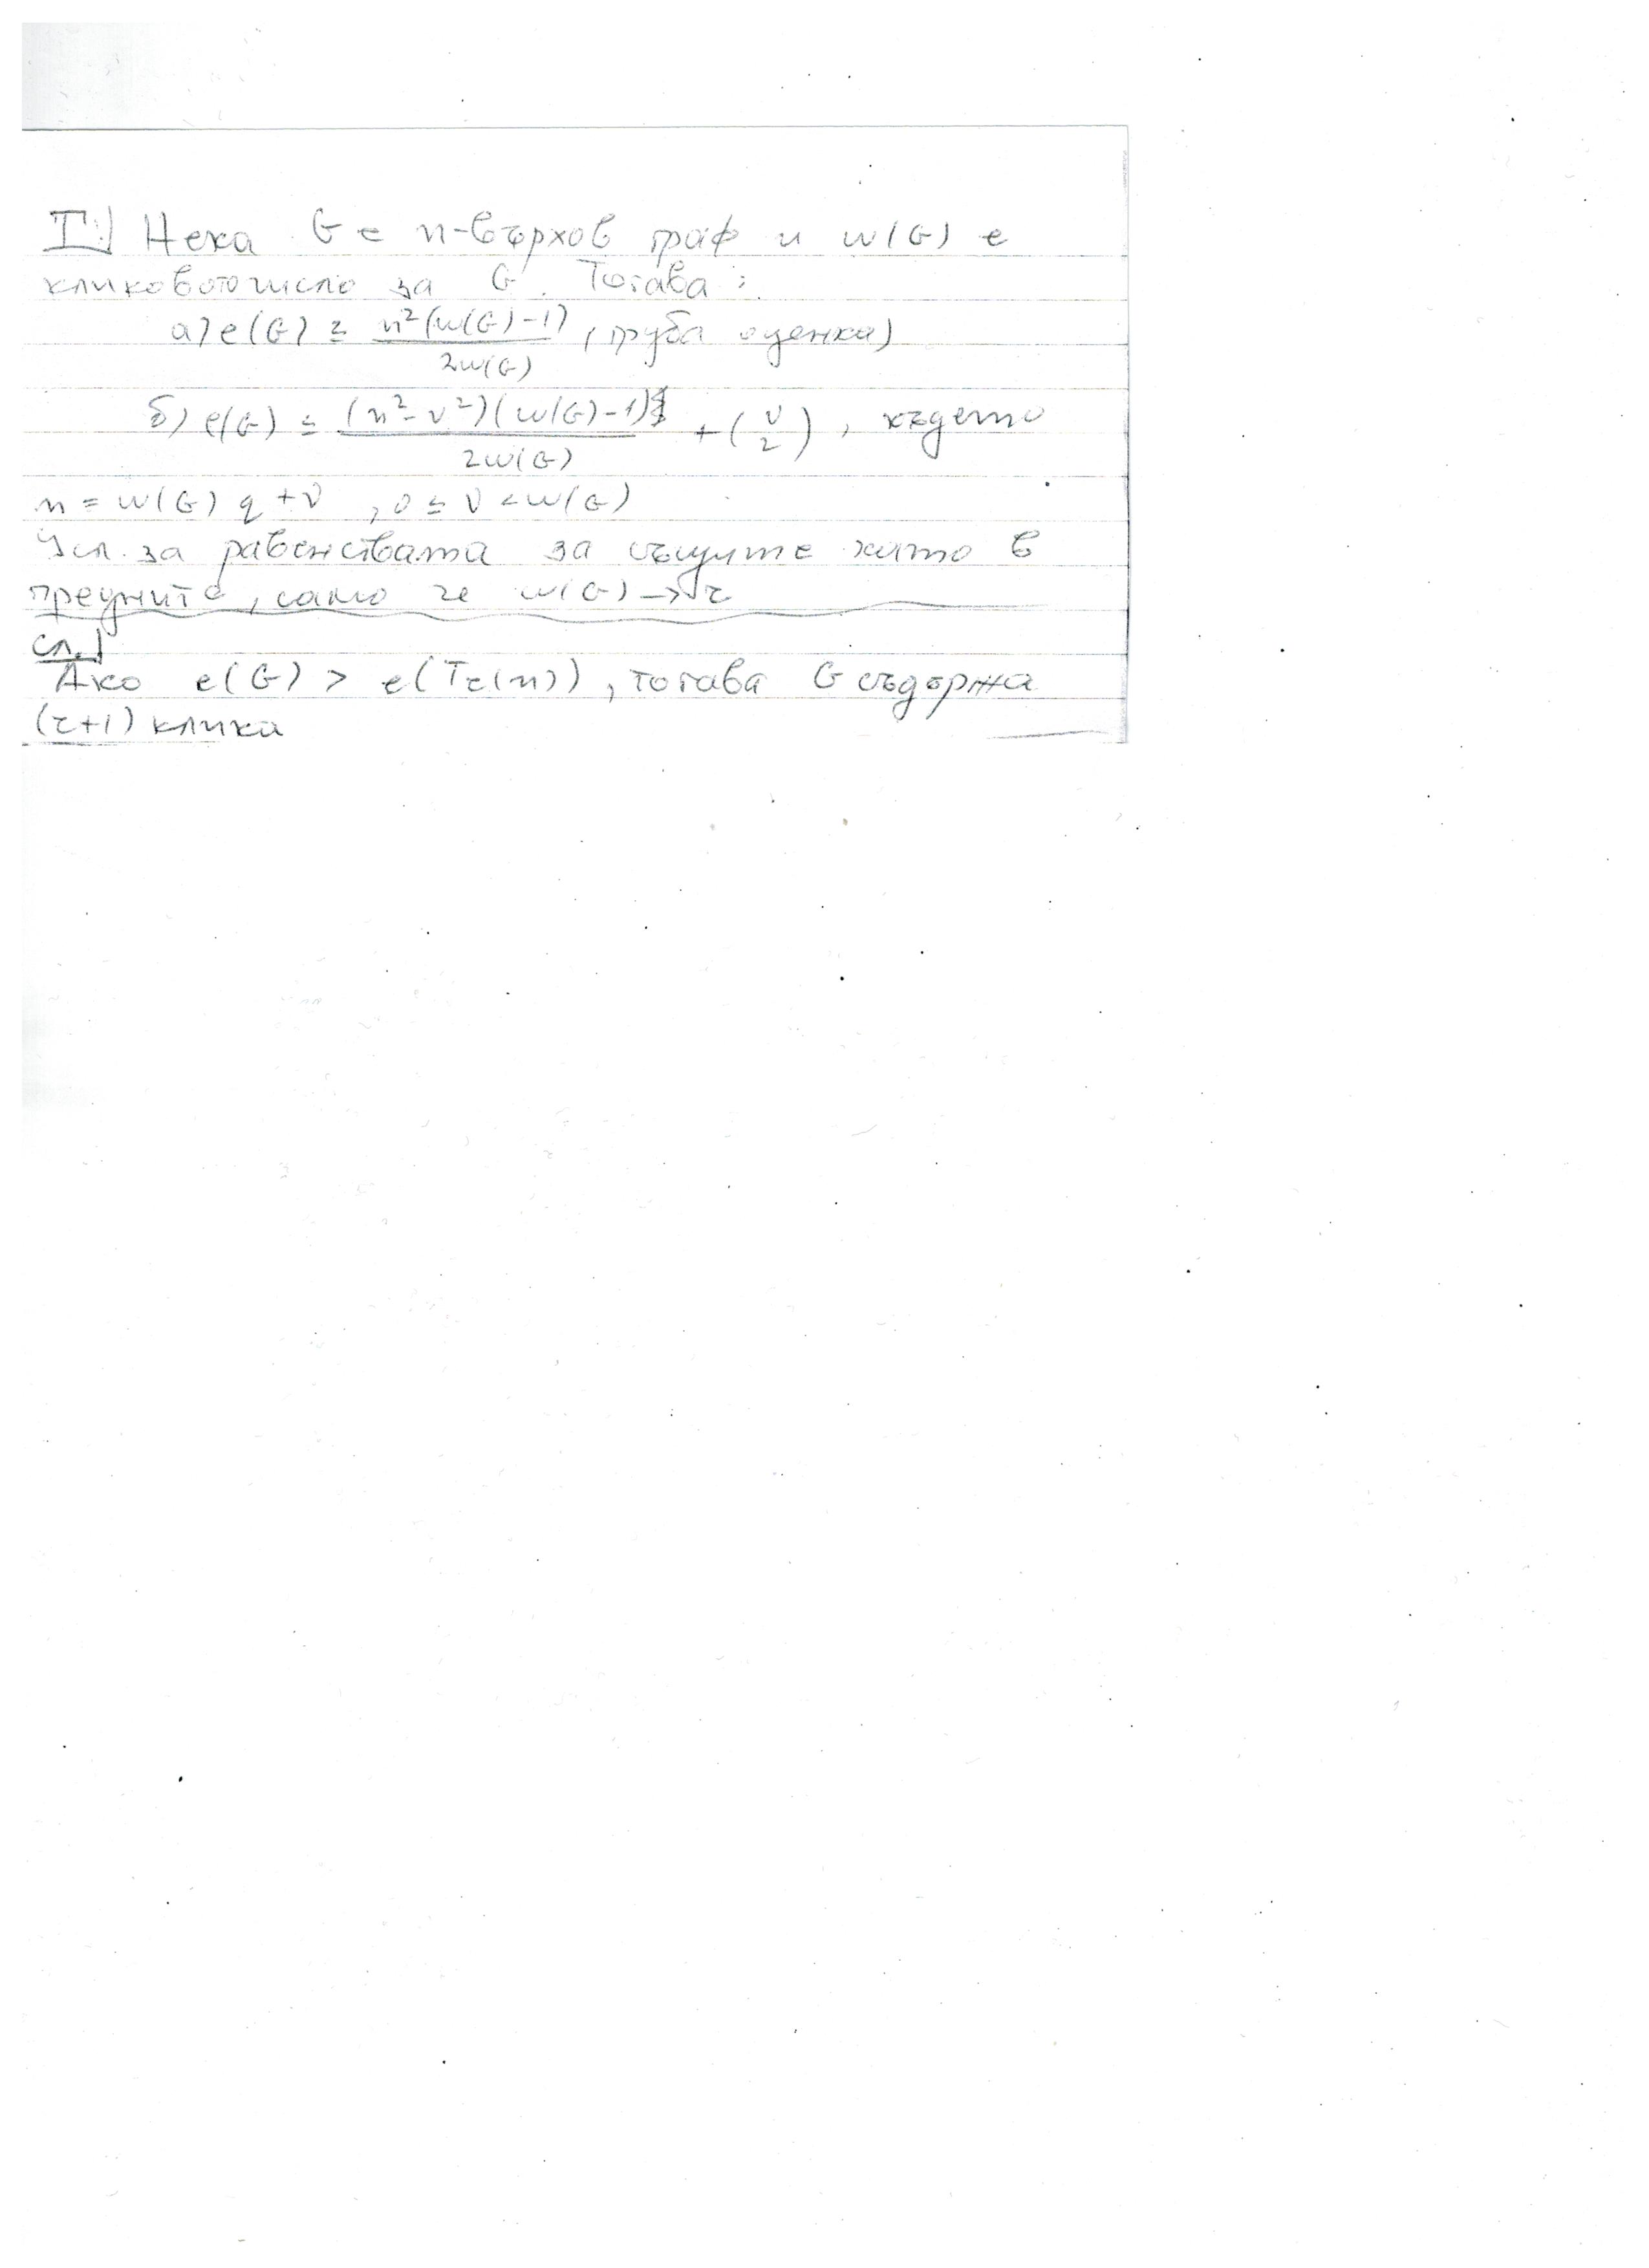 Т:| Нека G е n-върхов граф и w(G) е
кликовото число за G. Тогава:
а) e(G) ≤ n²(w(G)-1) / 2w(G) (груба оценка)
б) e(G) ≤ (n²-ν²)(w(G)-1) / 2w(G) + (ν 2), където
n = w(G) q + ν , 0 ≤ ν < w(G)
Усл. за равенствата за същите като в
предните, само че w(G) → r
Сл.|
Ако e(G) > e(Tr(n)), тогава G съдържа
(r+1) клика